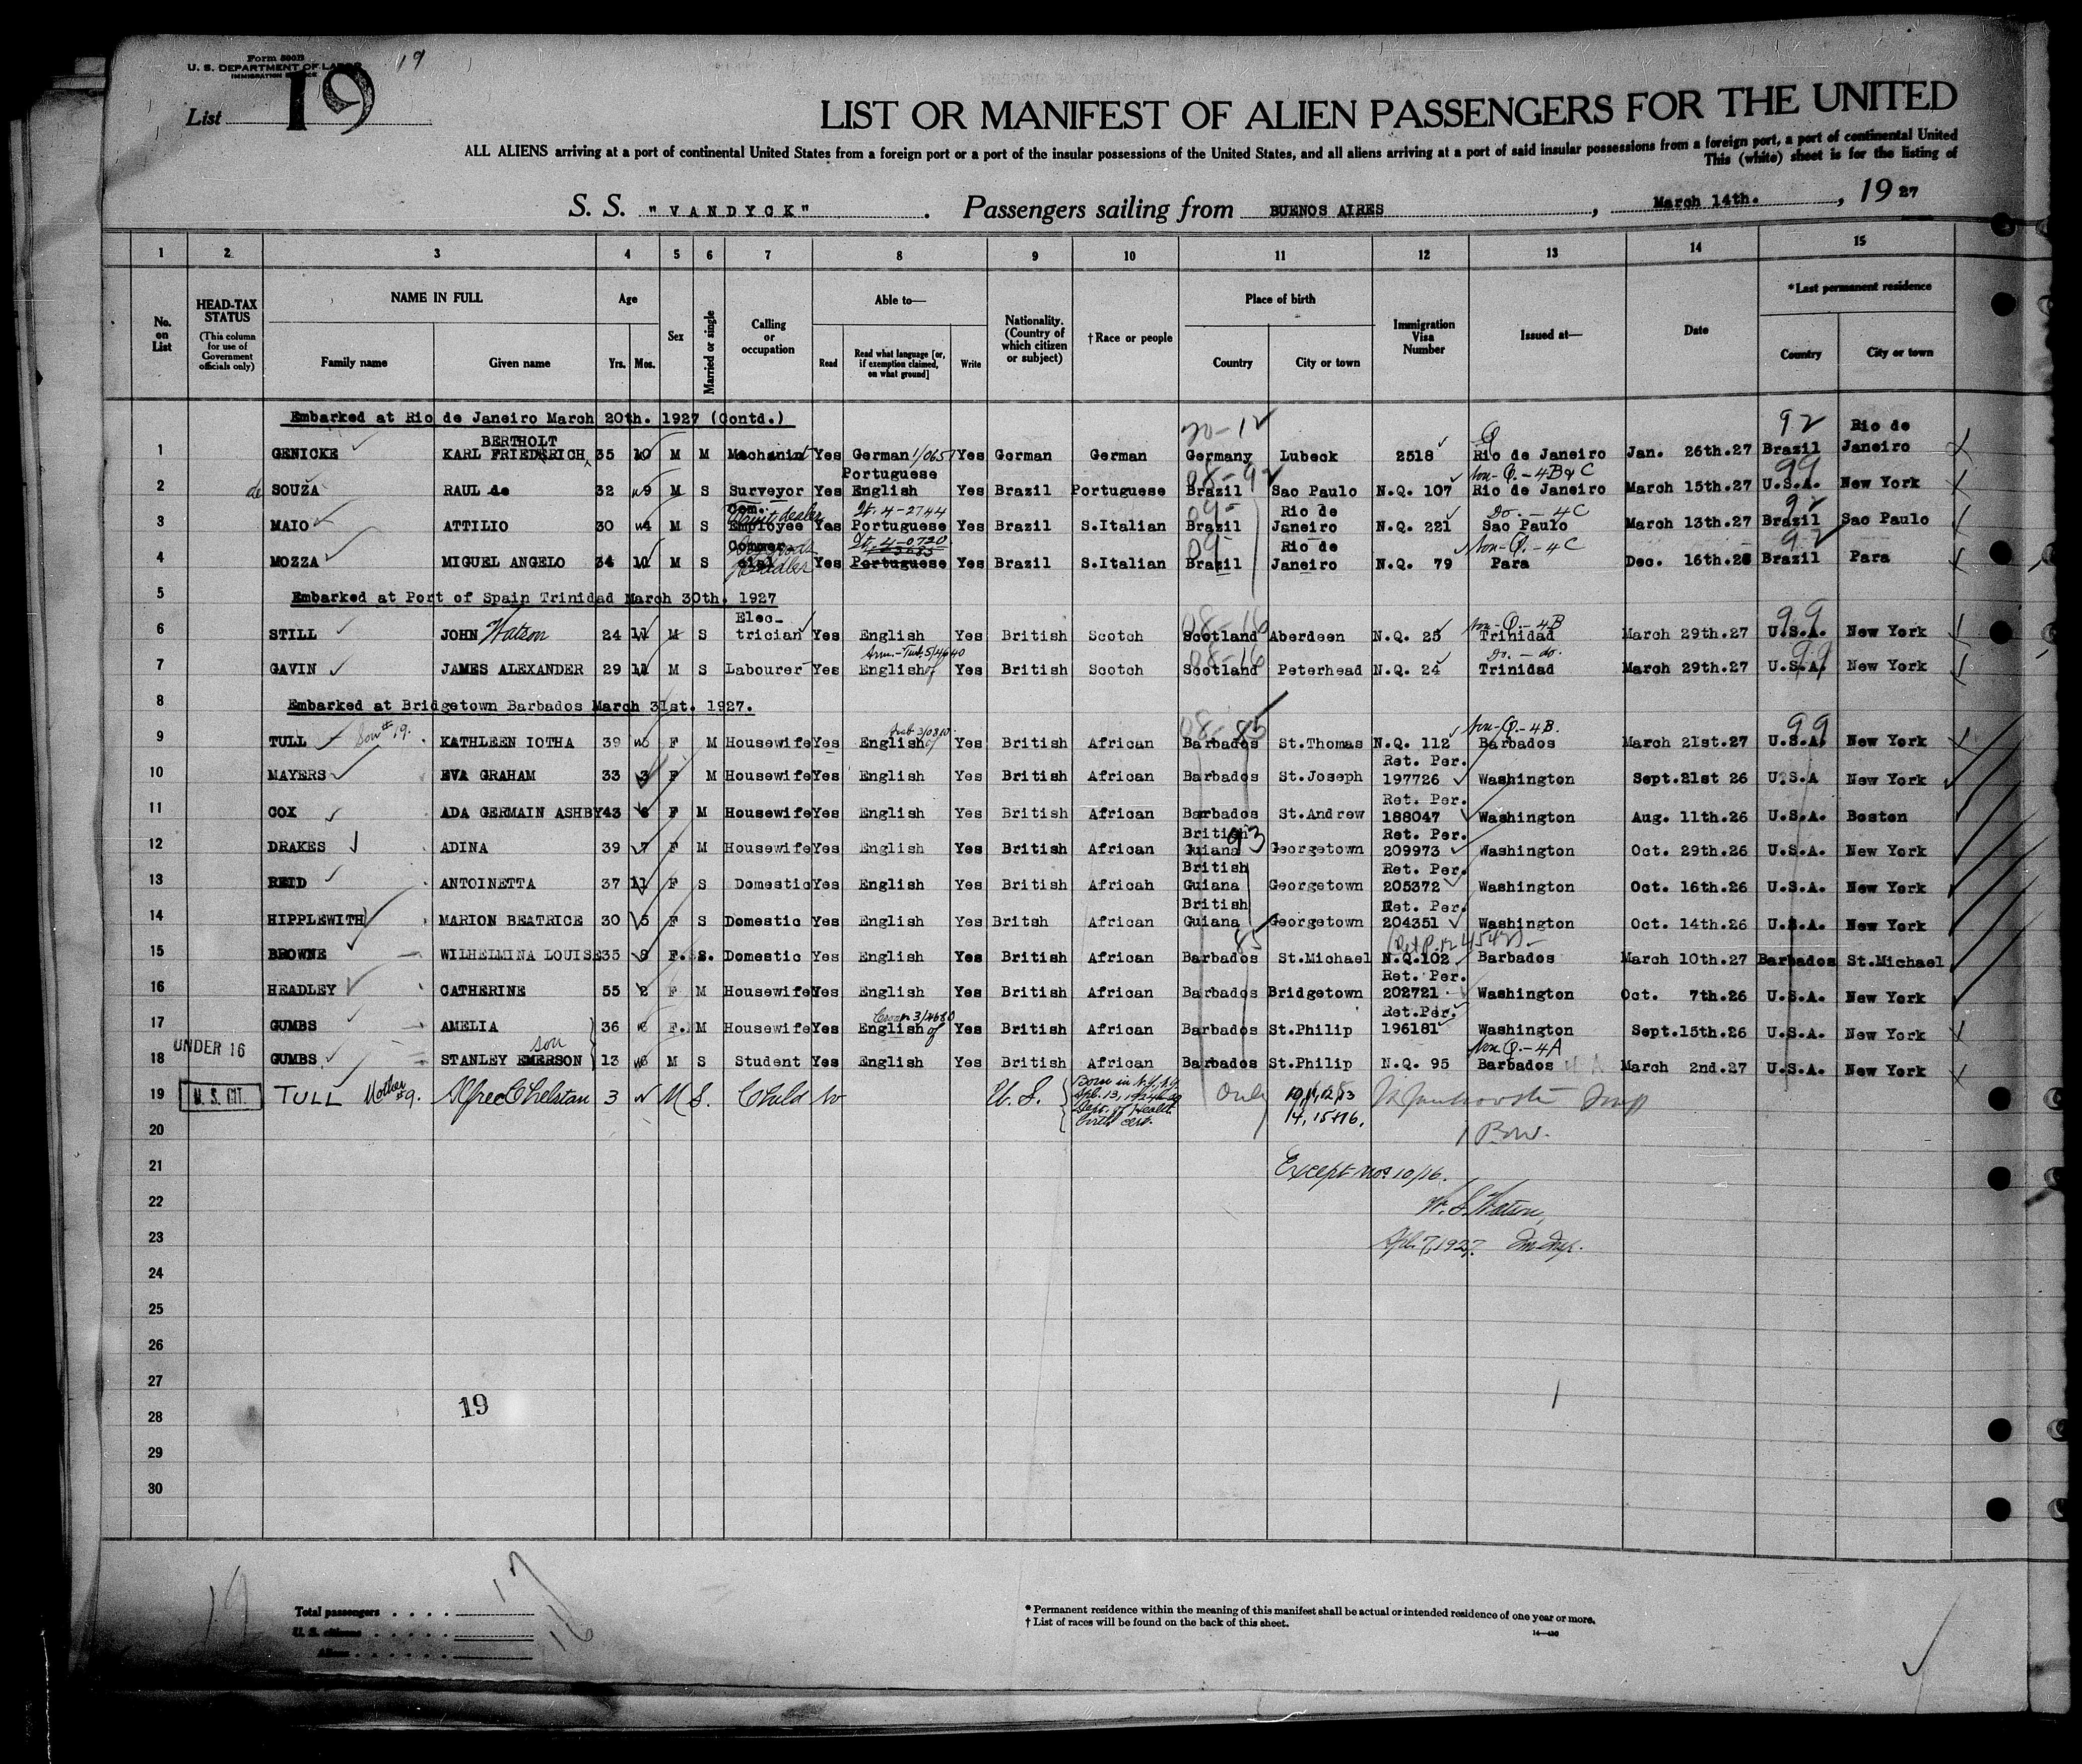 Form 500B
U. S. DEPARTMENT OF LABOR
IMMIGRATION SERVICE
19
List 19
LIST OR MANIFEST OF ALIEN PASSENGERS FOR THE UNITED
ALL ALIENS arriving at a port of continental United States from a foreign port or a port of the insular possessions of the United States, and all aliens arriving at a port of said insular possessions from a foreign port, a port of continental United
This (white) sheet is for the listing of
S. S. "VANDYCK" . Passengers sailing from BUENOS AIRES , March 14th. , 1927
1 2 3 4 5 6 7 8 9 10 11 12 13 14 15
No. on List
HEAD-TAX STATUS (This column for use of Government officials only)
NAME IN FULL Family name Given name
Age Yrs. Mos.
Sex
Married or single
Calling or occupation
Able to— Read Read what language [or, if exemption claimed, on what ground] Write
Nationality. (Country of which citizen or subject)
†Race or people
Place of birth Country City or town
Immigration Visa Number
Issued at—
Date
*Last permanent residence Country City or town
Embarked at Rio de Janeiro March 20th. 1927 (Contd.)
20-12 Q 92 Rio de
BERTHOLT
1 GENICKE KARL FRIEDERICH 35 10 M M Mechanic Yes German 1/0651 Yes German German Germany Lubeck 2518 Rio de Janeiro Jan. 26th.27 Brazil Janeiro
Portuguese 08-92 Non-Q.-4B&C 99
2 de SOUZA RAUL de 32 9 M S Surveyor Yes English Yes Brazil Portuguese Brazil Sao Paulo N.Q. 107 Rio de Janeiro March 15th.27 U.S.A. New York
Com. It. 4-2744 Rio de Do. - 4C 92
3 MAIO ATTILIO 30 4 M S Employee Yes Portuguese Yes Brazil S.Italian Brazil Janeiro N.Q. 221 Sao Paulo March 13th.27 Brazil Sao Paulo
Commer- It. 4-0720 Rio de Non-Q.-4C 92
4 MOZZA MIGUEL ANGELO 34 11 M S cial Yes Portuguese Yes Brazil S.Italian Brazil Janeiro N.Q. 79 Para Dec. 16th.26 Brazil Para
5 Embarked at Port of Spain Trinidad March 30th. 1927
Elec- 08-16 Non-Q.-4B 99
6 STILL JOHN Watson 24 11 M S trician Yes English Yes British Scotch Scotland Aberdeen N.Q. 25 Trinidad March 29th.27 U.S.A. New York
08-16 Do. - do. 99
7 GAVIN JAMES ALEXANDER 29 11 M S Labourer Yes English Yes British Scotch Scotland Peterhead N.Q. 24 Trinidad March 29th.27 U.S.A. New York
8 Embarked at Bridgetown Barbados March 31st. 1927.
08-85 Non-Q.-4B. 99
9 TULL Son #19. KATHLEEN IOTHA 39 F M Housewife Yes English Yes British African Barbados St.Thomas N.Q. 112 Barbados March 21st.27 U.S.A. New York
Ret. Per.
10 MAYERS EVA GRAHAM 33 3 F M Housewife Yes English Yes British African Barbados St.Joseph 197726 Washington Sept.21st 26 U.S.A New York
Ret. Per.
11 COX ADA GERMAIN ASHBY 43 F M Housewife Yes English Yes British African Barbados St.Andrew 188047 Washington Aug. 11th.26 U.S.A. Boston
British 93 Ret. Per.
12 DRAKES ADINA 39 7 F M Housewife Yes English Yes British African Guiana Georgetown 209973 Washington Oct. 29th.26 U.S.A. New York
British Ret. Per.
13 REID ANTOINETTA 37 11 F S Domestic Yes English Yes British African Guiana Georgetown 205372 Washington Oct. 16th.26 U.S.A. New York
British Ret. Per.
14 HIPPLEWITH MARION BEATRICE 30 5 F S Domestic Yes English Yes Britsh African Guiana Georgetown 204351 Washington Oct. 14th.26 U.S.A. New York
85
15 BROWNE WILHELMINA LOUISE 35 9 F. S. Domestic Yes English Yes British African Barbados St.Michael N.Q.102 Barbados March 10th.27 Barbados St.Michael
Ret. Per.
16 HEADLEY CATHERINE 55 2 F M Housewife Yes English Yes British African Barbados Bridgetown 202721 Washington Oct. 7th.26 U.S.A. New York
Ret.Per.
17 GUMBS AMELIA 36 F. M Housewife Yes English Yes British African Barbados St.Philip 196181 Washington Sept.15th.26 U.S.A. New York
UNDER 16 son Non Q.-4A
18 GUMBS STANLEY EMERSON 13 6 M S Student Yes English Yes British African Barbados St.Philip N.Q. 95 Barbados March 2nd.27 U.S.A. New York
19 U. S. CIT. TULL Mother #9. Alfred Chelstan 3 M S. Child No U. S. Born in N.Y., N.Y. Apl. 13, 1924 Dept. of Health Birth cert. Only 10, 11, 12, 13
14, 15+16.
20
21 Except Nos 10/16.
22 W. S. Watson,
23 Apl. 7, 1927.
24
25
26
27
28 19
29
30
17
16
19
Total passengers
U. S. citizens
Aliens
* Permanent residence within the meaning of this manifest shall be actual or intended residence of one year or more.
† List of races will be found on the back of this sheet.
14—430